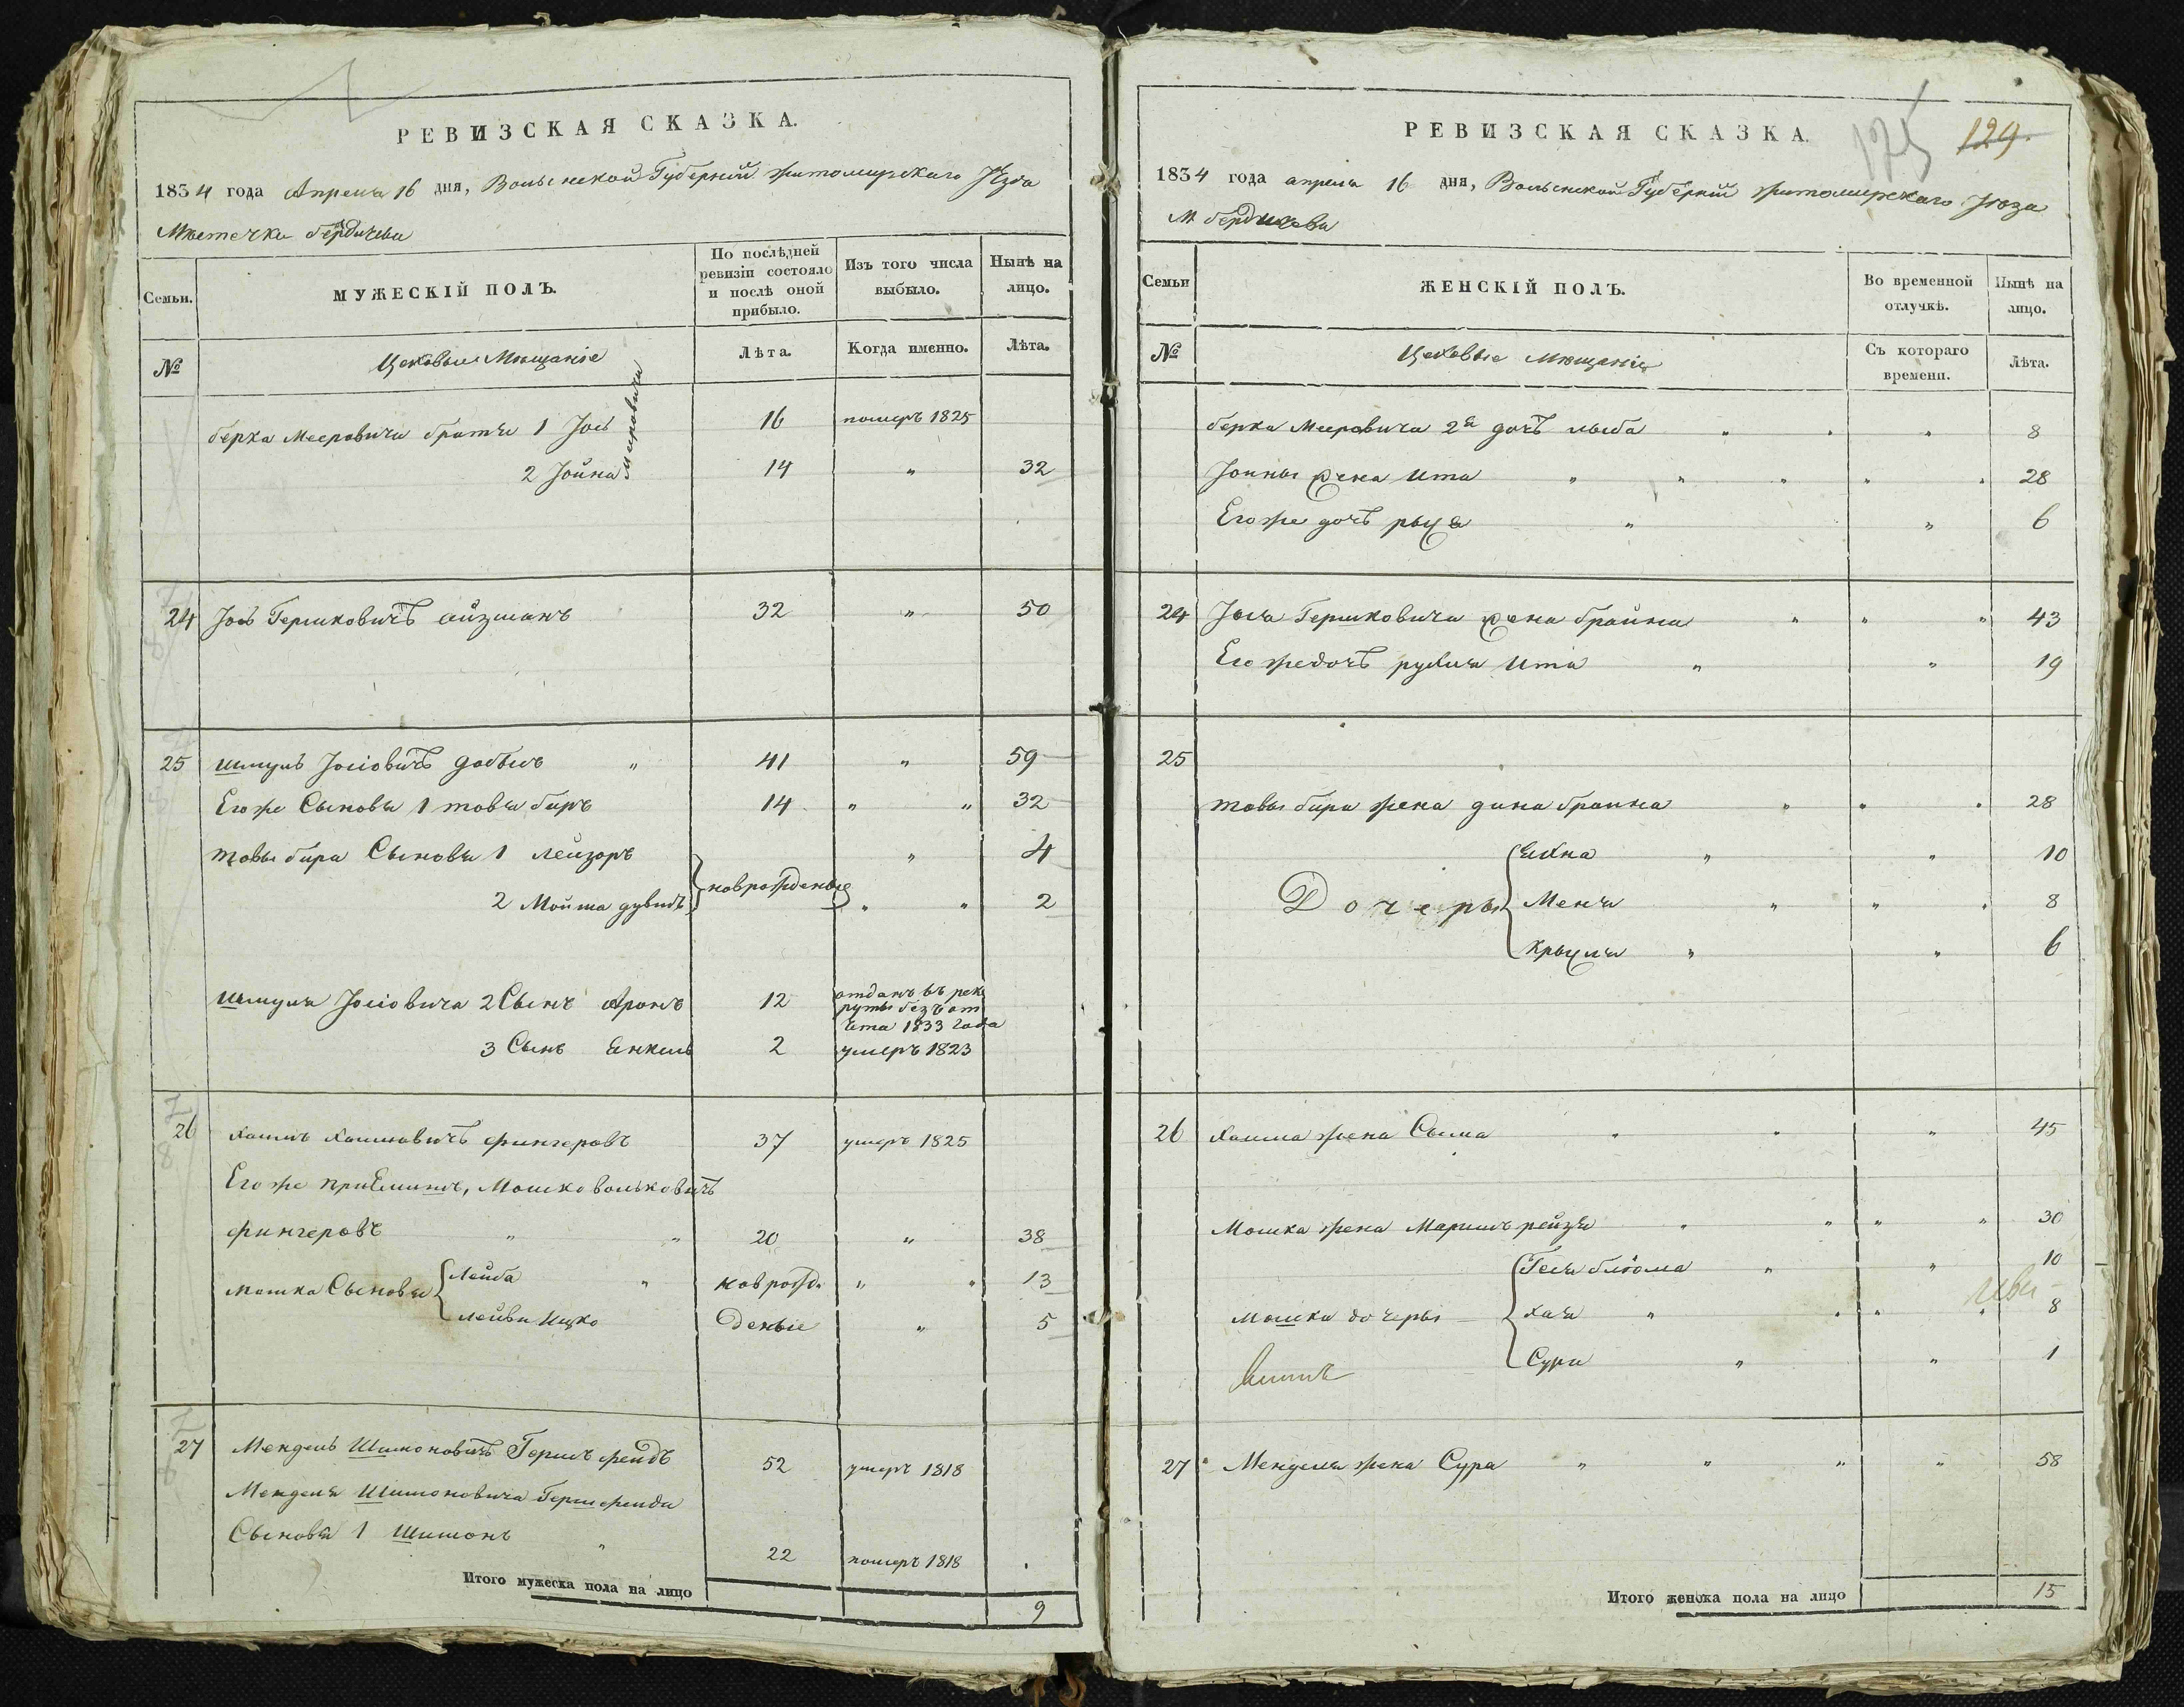 РЕВИЗСКАЯ СКАЗКА.
1834 года Апреля 16 дня, Волынской Губерніи житомирскаго Уѣзда
Мѣстечка бердичева
Семьи.
МУЖЕСКІЙ ПОЛЪ.
По послѣдней ревизіи состояло и послѣ оной прибыло.
Изъ того числа выбыло.
Нынѣ на лицо.
№
Цеховые Мещаніе
Лѣта.
Когда именно.
Лѣта.
берка мееровича братья 1 Јось Мееровичи 16 померъ 1825
2 Јойна 14 " 32
24 Јось Гершковичъ айзманъ 32 " 50
25 Шмуль Јосіовичъ " 41 " 59
Его же Сыновья 1 товя беръ 14 " " 32
товы бера Сыновья 1 лейзоръ " 4
2 Мойша дувидъ } новрожденые " " 2
Шмуля Јосіовича 2 Сынъ Аронъ 12 отданъ въ рек
руты безъ от
чета 1833 года
3 Сынъ Енкель 2 умеръ 1823
26 Хаимъ Хаимовичъ фингеровъ 37 умеръ 1825
Его же приемышъ, Мошко вольковичъ
фингеровъ " " 20 " 38
мошка Сыновья { Лейба " новрож- " " 13
лейви Ицко деные " 5
27 Мендель Шимоновичъ Гершфендъ 52 умеръ 1818
Менделя Шимоновича Гершфенда
Сыновья 1 Шимонъ " 22 померъ 1818
Итого мужеска пола на лицо 9
РЕВИЗСКАЯ СКАЗКА.
175 129.
1834 года апреля 16 дня, Волынской Губерніи житомирскаго Уѣзда
М бердичева
Семьи
ЖЕНСКІЙ ПОЛЪ.
Во временной отлучкѣ.
Нынѣ на лицо.
№
Цеховые Мещаніе
Съ котораго времени.
Лѣта.
берка Мееровича 2я дочъ " " " 8
Јойны жена Ита " " " " " 28
Его же дочъ рыся " " 6
24 Јося Гершковича жена брайна " " " 43
Его же дочъ рухля Ита " " 19
25
товы бера жена дина браина " " " 28
Дочеры { Ехна " " 10
Меня " " " 8
крысля " " 6
26 Хаима жена Сыма " " " 45
Мошка жена Маримъ рейзя " " " " 30
Мошка дочеры { Геля блюма " " 10
Хая " " " " 8
Сура " " 1
27 Менделя жена Сура " " " " 58
Итого женска пола на лицо 15